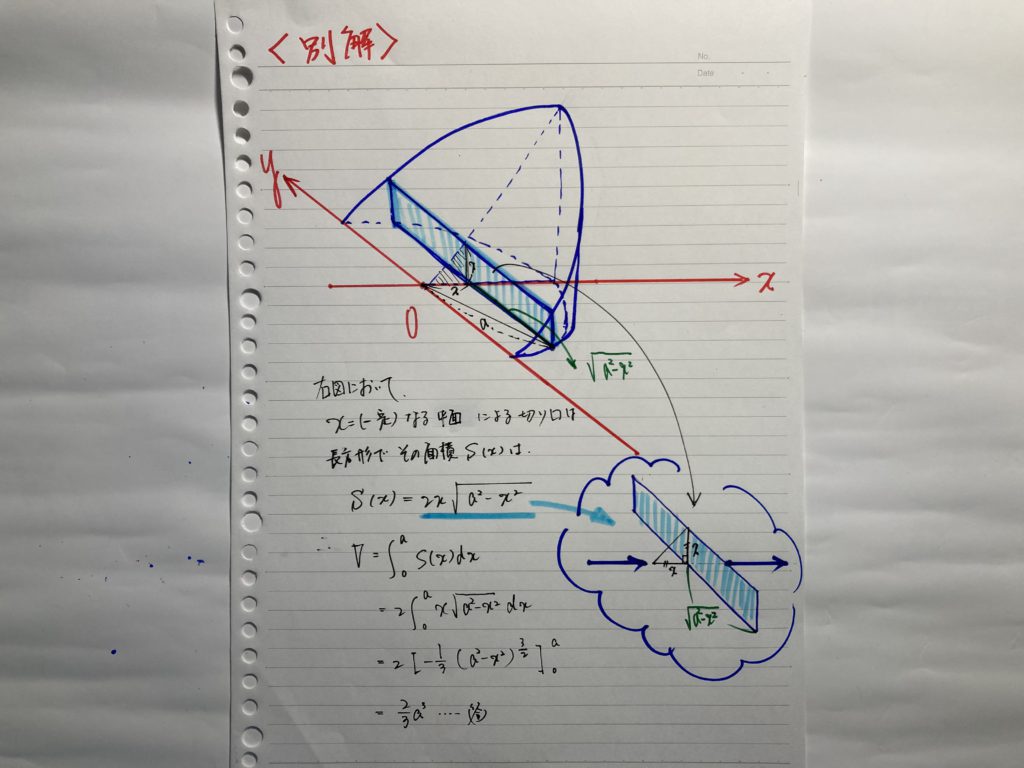 <別解>
No.
Date
y
x
O
x
a
√a²-x²
右図において.
x=(一定)なる平面 による切り口は
長方形で その面積 S(x)は.
S(x) = 2x√a²-x²
∴ V = ∫₀ᵃ S(x)dx
= 2∫₀ᵃ x√a²-x² dx
= 2[-1/3 (a²-x²)^{3/2}]₀ᵃ
= 2/3 a³ ‥‥ (答)
x
x
√a²-x²